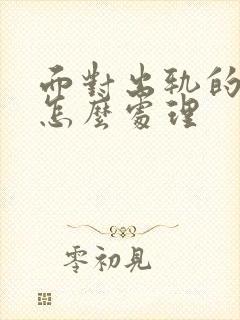 而對出軌的
怎麼處理
零初見